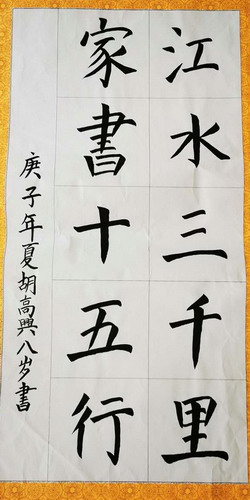 江水三千里
家書十五行
庚子年夏胡高興八岁書